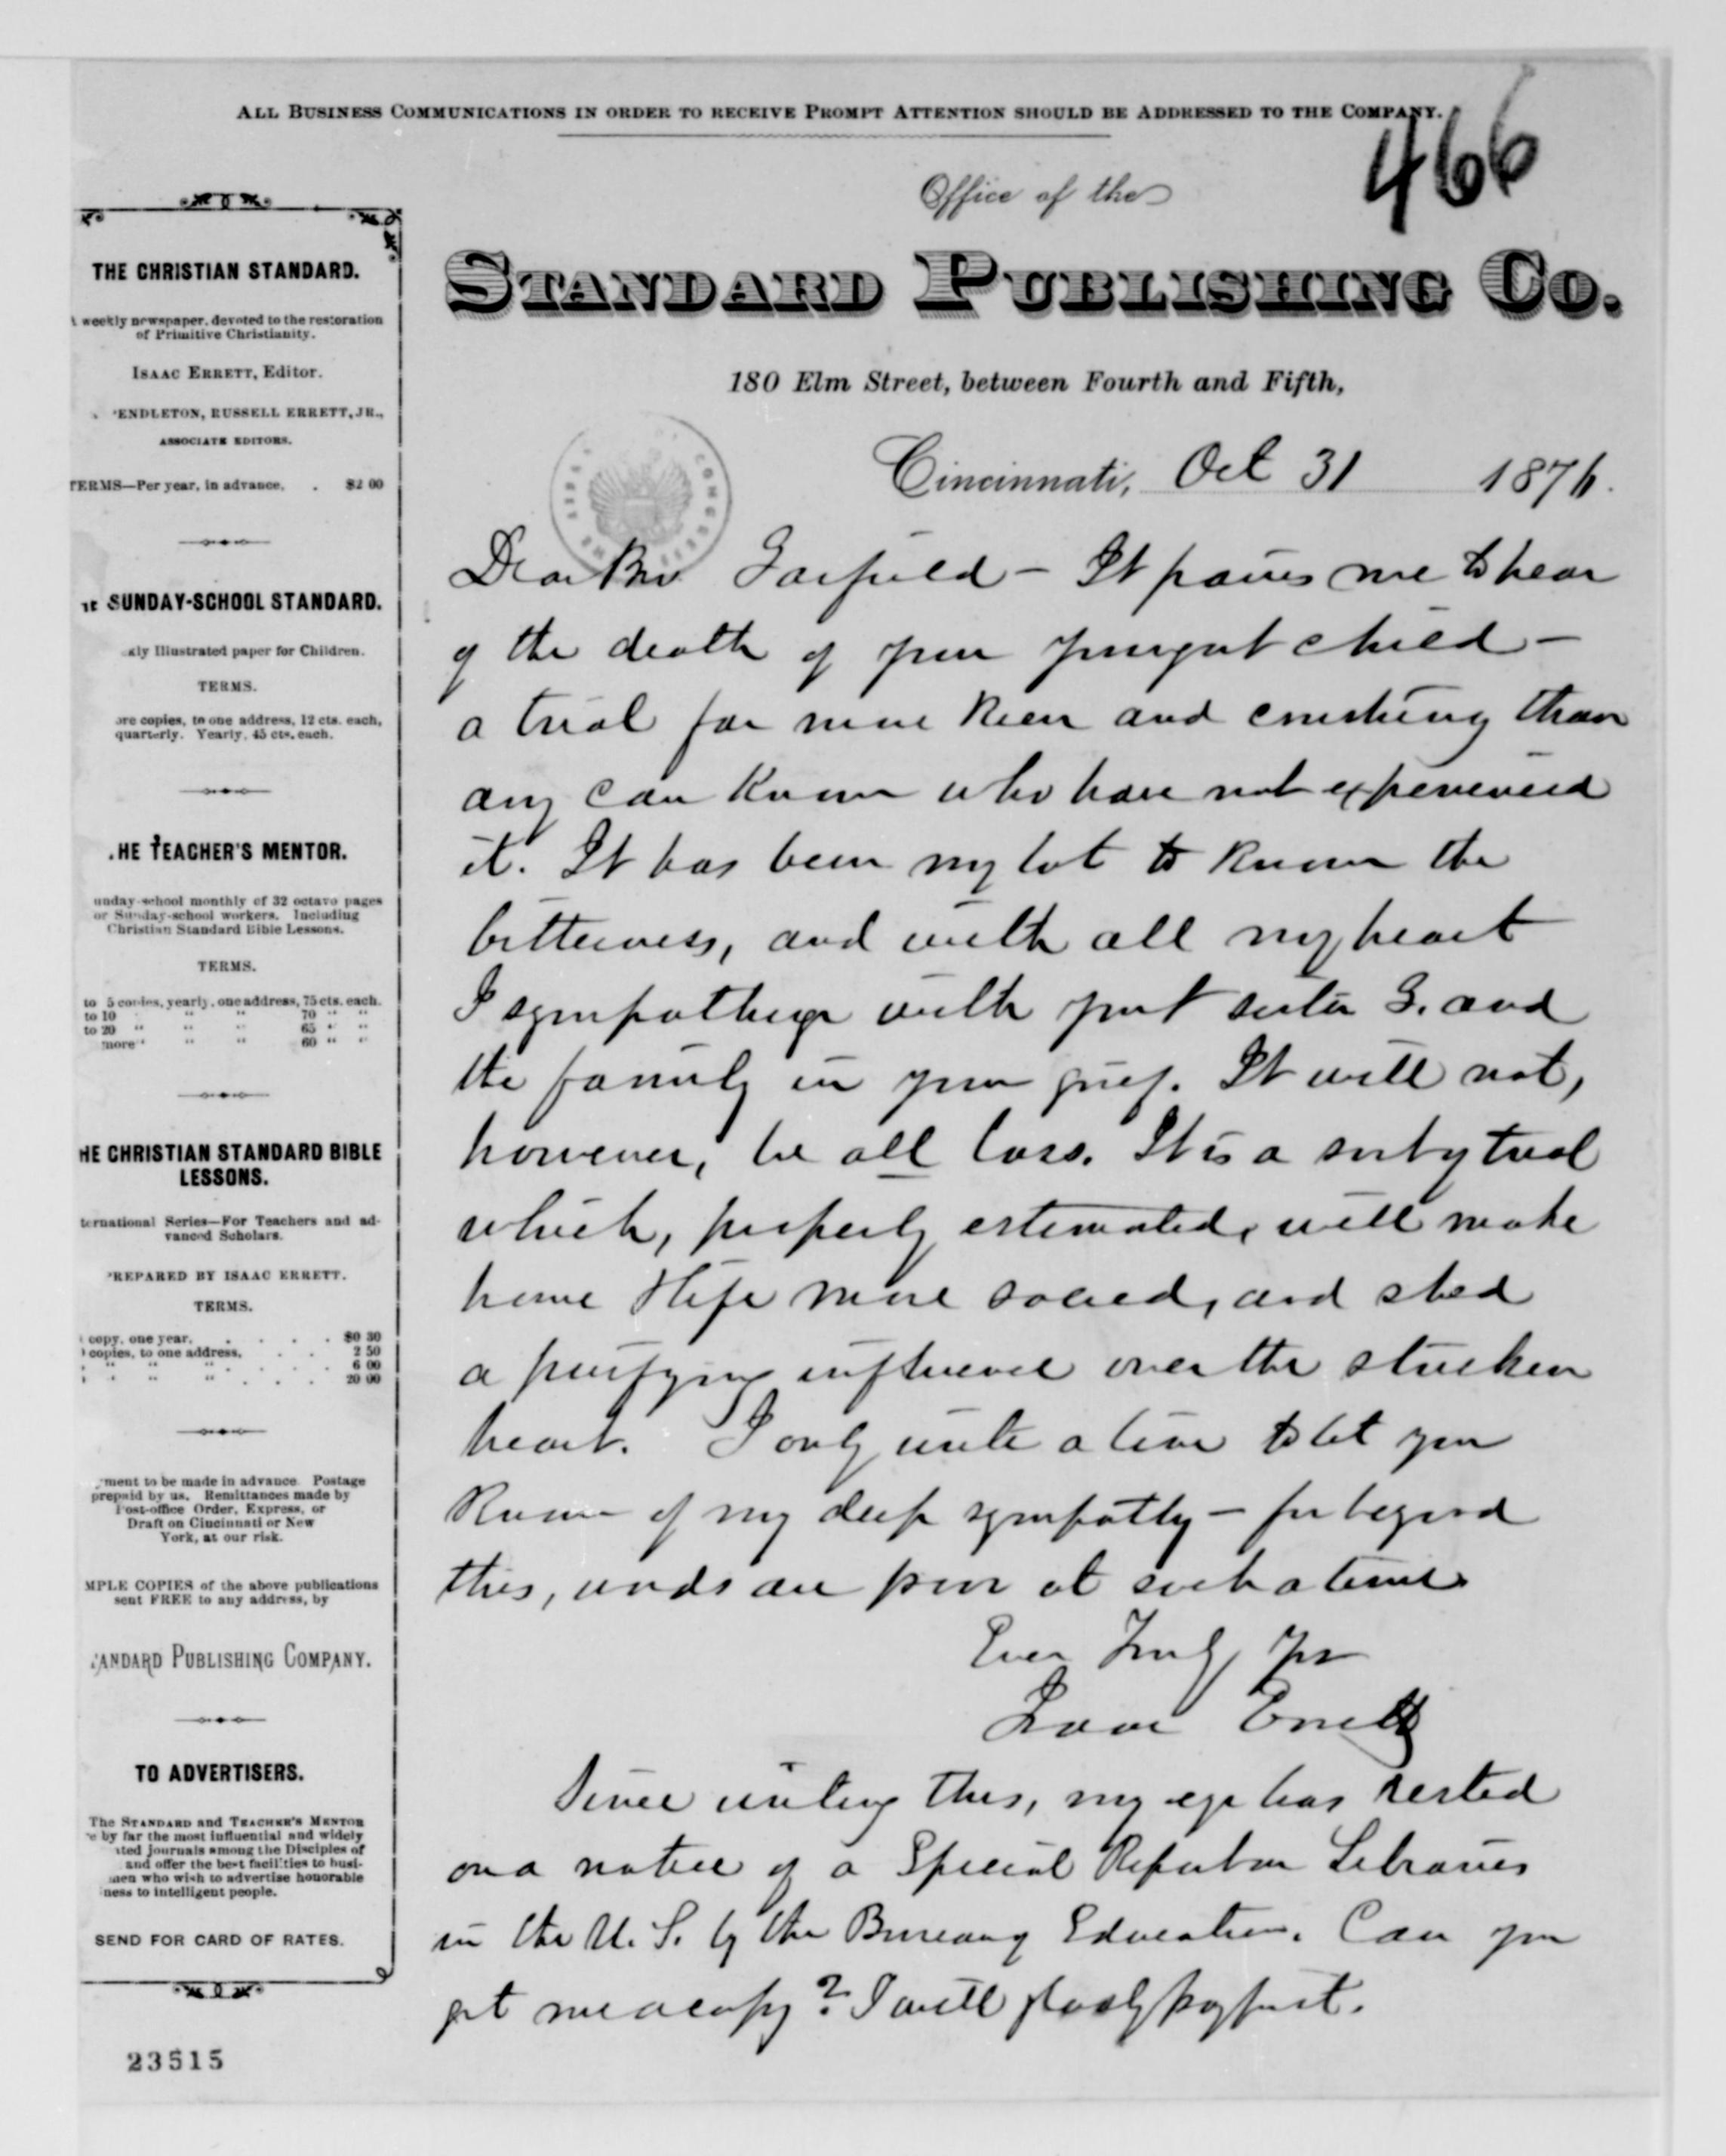 ALL BUSINESS COMMUNICATIONS IN ORDER TO RECEIVE PROMPT ATTENTION SHOULD BE ADDRESSED TO THE COMPANY.
466
Office of the
STANDARD PUBLISHING CO.
180 Elm Street, between Fourth and Fifth,
Cincinnati, Oct 31 1876.
THE CHRISTIAN STANDARD.
A weekly newspaper, devoted to the restoration
of Primitive Christianity.
ISAAC ERRETT, Editor.
ENDLETON, RUSSELL ERRETT, JR.,
ASSOCIATE EDITORS.
TERMS—Per year, in advance, . $2 00
SUNDAY-SCHOOL STANDARD.
kly Illustrated paper for Children.
TERMS.
ore copies, to one address, 12 cts. each,
quarterly. Yearly, 45 cts. each.
HE TEACHER'S MENTOR.
unday-school monthly of 32 octavo pages
or Sunday-school workers. Including
Christian Standard Bible Lessons.
TERMS.
to 5 copies, yearly, one address, 75 cts. each.
to 10 " " " 70 " "
to 20 " " " 65 " "
more " " " 60 " "
HE CHRISTIAN STANDARD BIBLE
LESSONS.
ternational Series—For Teachers and ad-
vanced Scholars.
PREPARED BY ISAAC ERRETT.
TERMS.
copy, one year, . . . . $0 30
copies, to one address, . . . 2 50
" " " . . . . 6 00
" " " . . . . 20 00
ment to be made in advance. Postage
prepaid by us. Remittances made by
Post-office Order, Express, or
Draft on Cincinnati or New
York, at our risk.
MPLE COPIES of the above publications
sent FREE to any address, by
ANDARD PUBLISHING COMPANY.
TO ADVERTISERS.
The STANDARD and TEACHER'S MENTOR
e by far the most influential and widely
ted journals among the Disciples of
and offer the best facilities to busi-
men who wish to advertise honorable
ness to intelligent people.
SEND FOR CARD OF RATES.
23515
Dear Bro Garfield – It pains me to hear
of the death of your youngest child –
a trial far more keen and crushing than
any can know who have not experienced
it. It has been my lot to know the
bitterness, and with all my heart
I sympathize with you & sister G. and
the family in your grief. It will not,
however, be all loss. It is a sort of trial
which, properly estimated, will make
home life more sacred, and shed
a purifying influence over the stricken
heart. I only write a line to let you
know of my deep sympathy – for beyond
this, words are poor at such a time.
Ever Truly Yrs
Isaac Errett
Since writing this, my eye has rested
on a notice of a Special Report on Libraries
in the U. S. by the Bureau of Education. Can you
get me a copy? I will gladly pay for it.